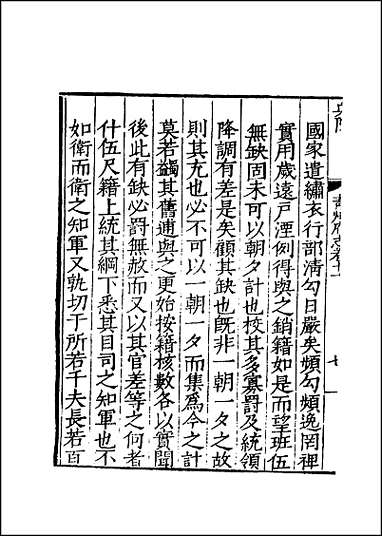 國家遣繡衣行部淸勾日嚴矣頻勾頻逸罔裨
實用歲遠戸湮例得與之銷籍如是而望班伍
無缺固未可以朝夕計也校其多寡罸及統領
降調有差是矣顧其缺也旣非一朝一夕之故
則其充也必不可以一朝一夕而集爲今之計
莫若蠲其舊逋與之更始按籍核數各以實聞
後此有缺必罸無赦而又以其官差等之何者
什伍尺籍上統其綱下悉其目司之知軍也不
如衛而衛之知軍又孰切于所若千夫長若百
兵防
七